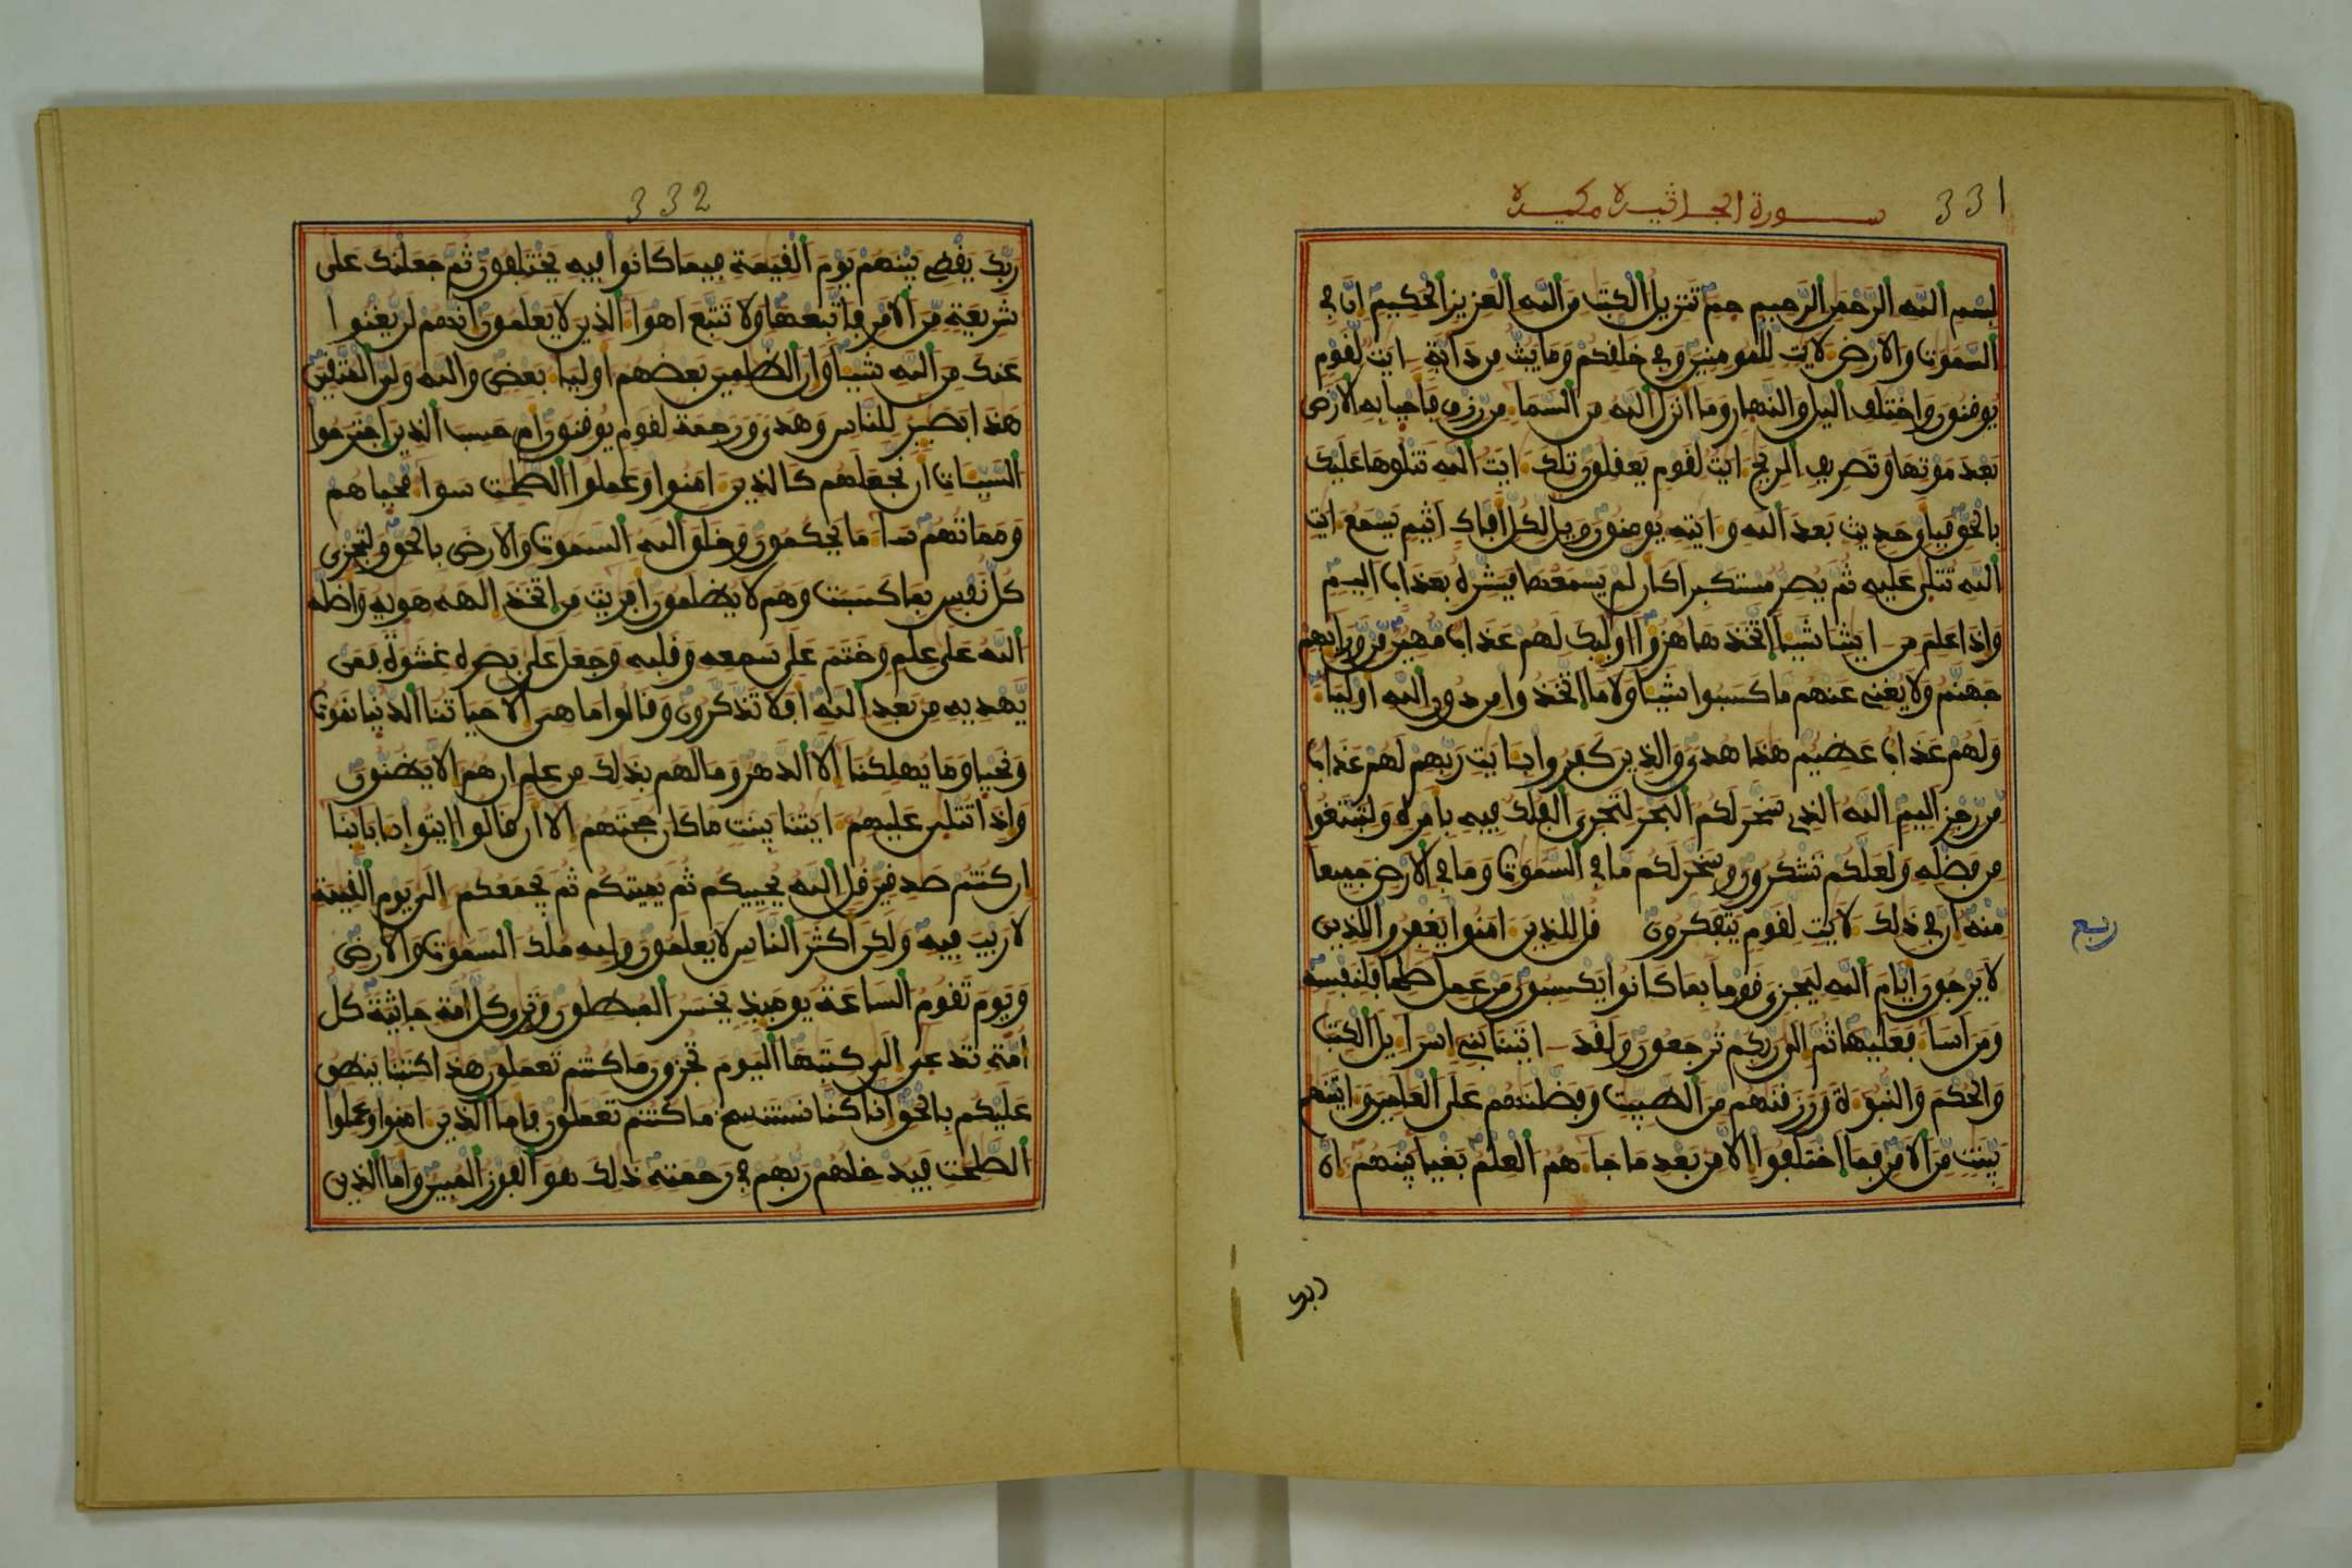 331
سورة الجاثية مكية
بسم الله الرحمن الرحيم حم تنزيل الكتب من الله العزيز الحكيم ان في
السموت والارض لايت للمومنين وفي خلفكم وما يبث من دابة ايت لفوم
يوفنون واختلف اليل والنهار وما انزل الله من السماء من رزق فاحيا به الارض
بعد موتها وتصريف الريح ايت لفوم يعفلون تلك ايت الله نتلوها عليك
بالحق فباي حديث بعد الله وايته يومنون ويل لكل افاك اثيم يسمع ايت
الله تتلى عليه ثم يصر مستكبرا كان لم يسمعها فبشره بعذاب اليم
واذا علم من ايتنا شيئا اتخذها هزؤا اوليك لهم عذاب مهين من ورايهم
جهنم ولا يغني عنهم ما كسبوا شيئا ولا ما اتخذوا من دون الله اولياء
ولهم عذاب عظيم هذا هدى والذين كفروا بايت ربهم لهم عذاب
من رجز اليم الله الذي سخر لكم البحر لتجري الفلك فيه بامره ولتبتغوا
من فضله ولعلكم تشكرون وسخر لكم ما في السموت وما في الارض جميعا
منه ان في ذلك لايت لفوم يتفكرون فل للذين امنوا يغفروا للذين
ربع
لا يرجون ايام الله ليجزي فوما بما كانوا يكسبون من عمل صلحا فلنفسه
ومن اساء فعليها ثم الى ربكم ترجعون ولفد اتينا بني اسراءيل الكتب
والحكم والنبوءة ورزفنهم من الطيبت وفضلنهم على العلمين واتينهم
بينت من الامر فما اختلفوا الا من بعد ما جاءهم العلم بغيا بينهم ان
ربك
332
ربك يفضي بينهم يوم الفيمة فيما كانوا فيه يختلفون ثم جعلنك على
شريعة من الامر فاتبعها ولا تتبع اهواء الذين لا يعلمون انهم لن يغنوا
عنك من الله شيئا وان الظلمين بعضهم اولياء بعض والله ولي المتفين
هذا بصير للناس وهدى ورحمة لفوم يوفنون ام حسب الذين اجترحوا
السيئات ان نجعلهم كالذين امنوا وعملوا الصلحت سواء محياهم
ومماتهم ساء ما يحكمون وخلق الله السموت والارض بالحق ولتجزى
كل نفس بما كسبت وهم لا يظلمون افريت من اتخذ الهه هويه واضله
الله على علم وختم على سمعه وفلبه وجعل على بصره غشوة فمن
يهديه من بعد الله افلا تذكرون وفالوا ما هي الا حياتنا الدنيا نموت
ونحيا وما يهلكنا الا الدهر وما لهم بذلك من علم ان هم الا يظنون
واذا تتلى عليهم ايتنا بينت ما كان حجتهم الا ان فالوا ايتوا بابائنا
ان كنتم صدفين فل الله يحييكم ثم يميتكم ثم يجمعكم الى يوم الفيمة
لا ريب فيه ولكن اكثر الناس لا يعلمون ولله ملك السموت والارض
ويوم تفوم الساعة يوميذ يخسر المبطلون وترى كل امة جاثية كل
امة تدعى الى كتبها اليوم تجزون ما كنتم تعملون هذا كتبنا ينطق
عليكم بالحق انا كنا نستنسخ ما كنتم تعملون فاما الذين امنوا وعملوا
الصلحت فيدخلهم ربهم في رحمته ذلك هو الفوز المبين واما الذين